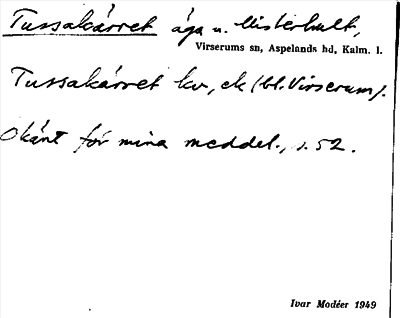 Tussakärret äga u. Misterhult,
Virserums sn, Aspelands hd, Kalm. l.
Tussakärret kv., ek (bl. Virserum).
Okänt för mina meddel., s. 52.
Ivar Modéer 1949